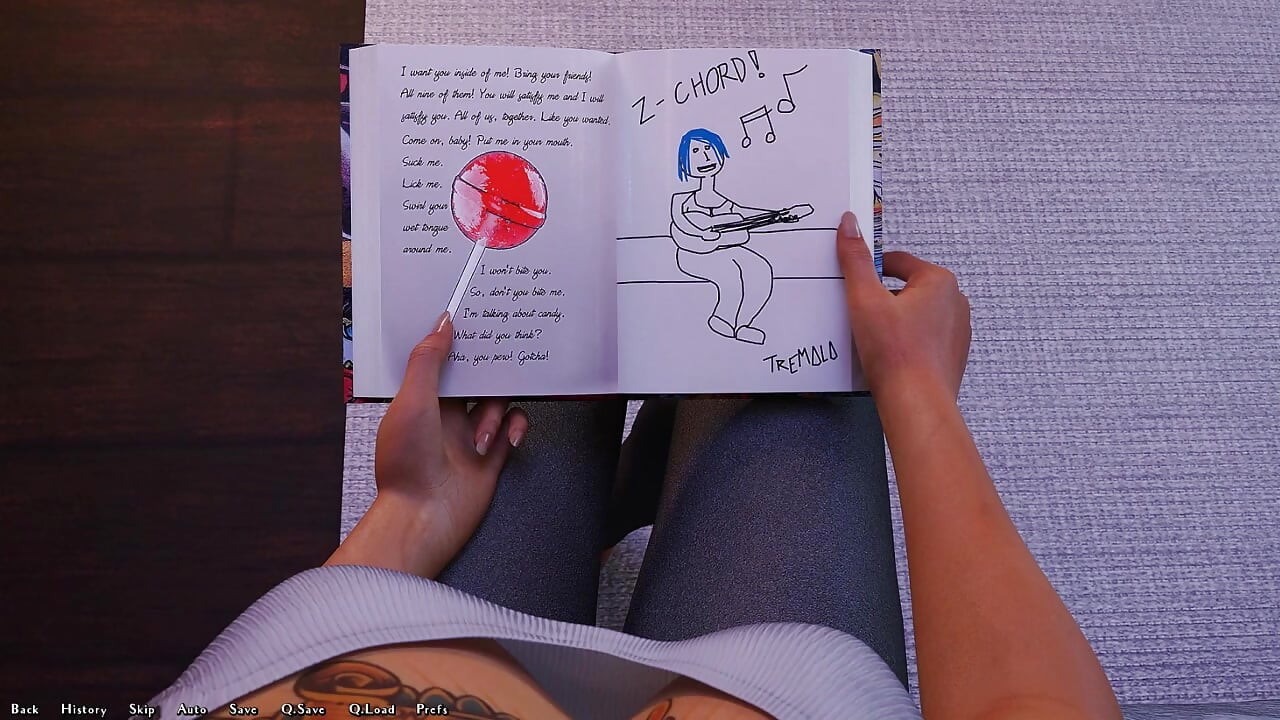 I want you inside of me! Bring your friends!
All nine of them! You will satisfy me and I will
satisfy you. All of us, together. Like you wanted.
Come on, baby! Put me in your mouth.
Suck me.
Lick me.
Swirl your
wet tongue
around me.
I won't bite you.
So, don't you bite me.
I'm talking about candy.
What did you think?
Aha, you perv! Gotcha!
Z-CHORD!
TREMOLO
Back History Skip Auto Save Q.Save Q.Load Prefs